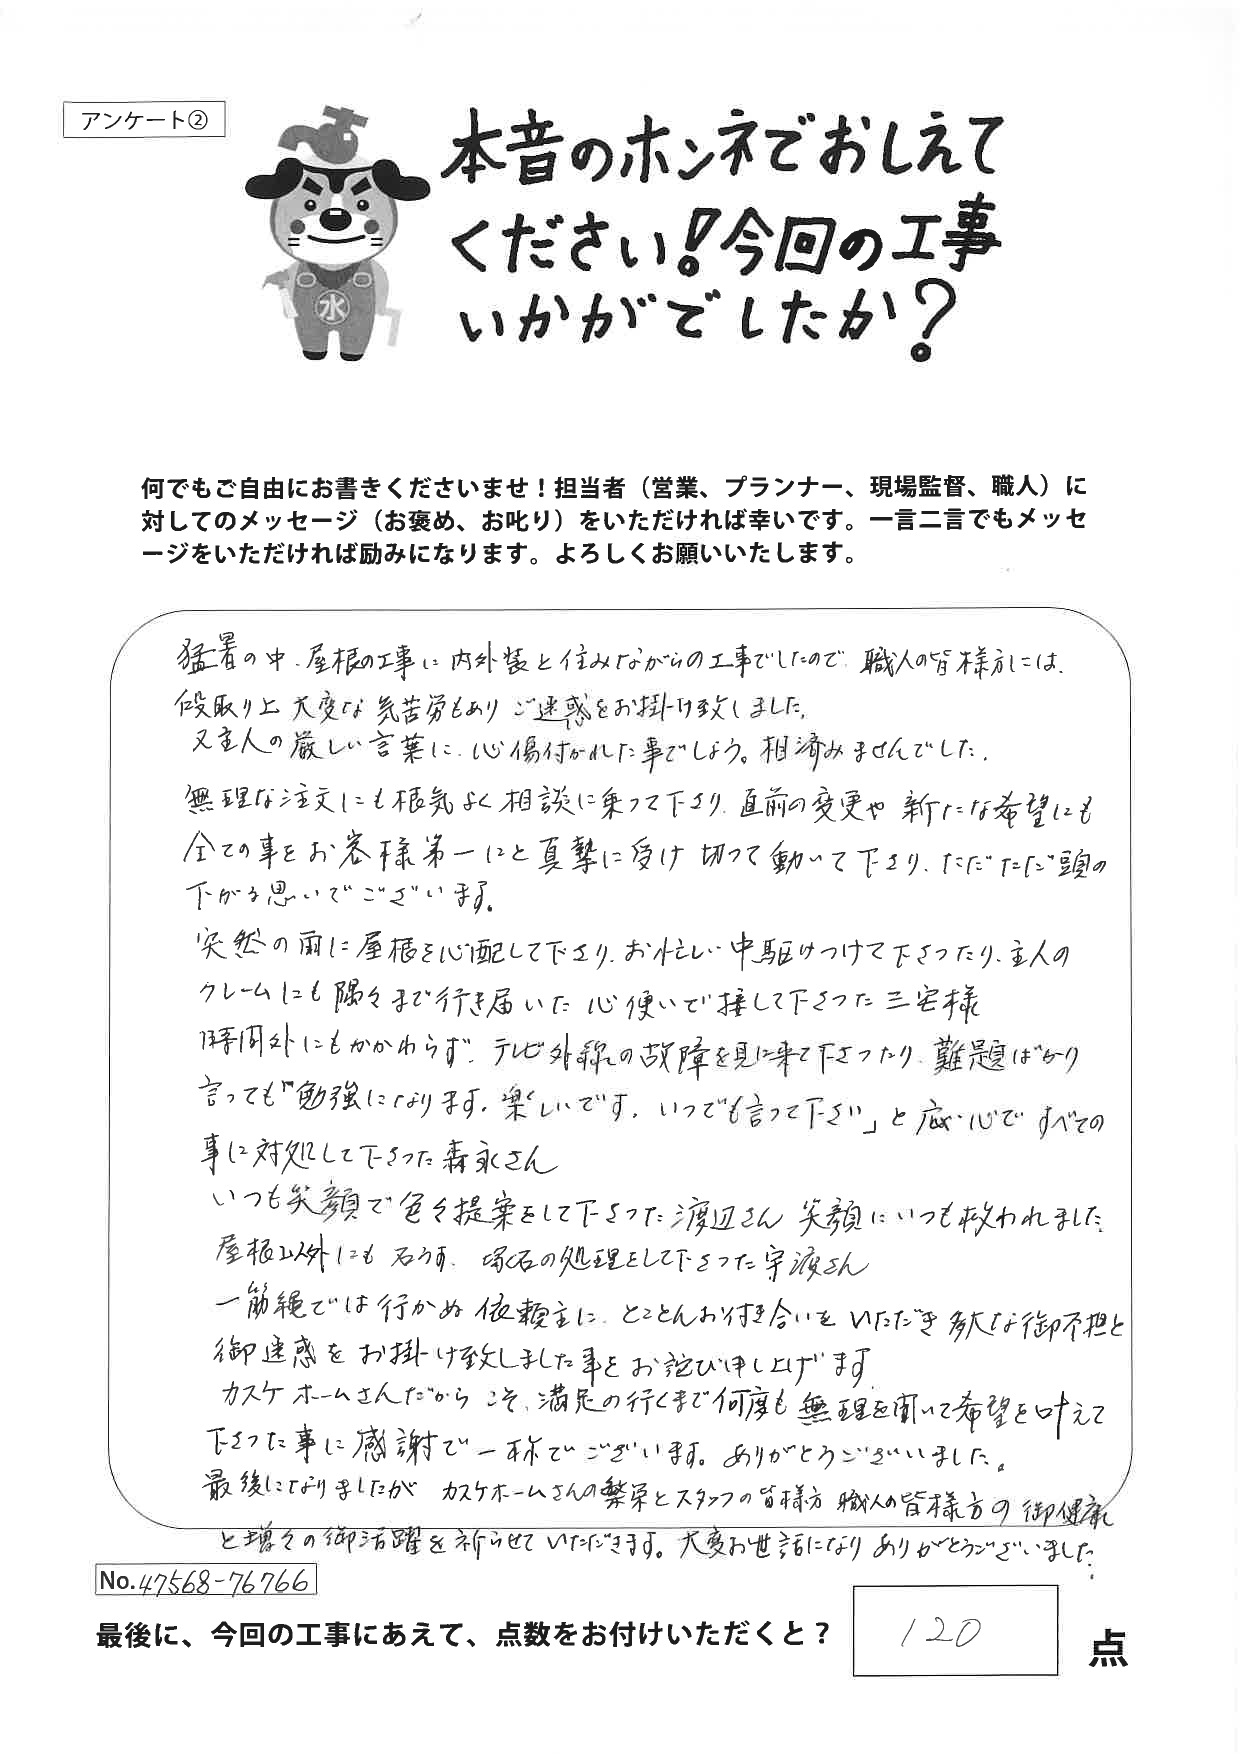 アンケート②
本音のホンネでおしえて
ください!今回の工事
いかがでしたか?
水
何でもご自由にお書きくださいませ！担当者（営業、プランナー、現場監督、職人）に
対してのメッセージ（お褒め、お叱り）をいただければ幸いです。一言二言でもメッセ
ージをいただければ励みになります。よろしくお願いいたします。
猛暑の中、屋根の工事に内外装と住みながらの工事でしたので、職人の皆様方には、
段取り上 大変な気苦労もあり ご迷惑をお掛け致しました。
又主人の厳しい言葉に、心傷付かれた事でしょう。相済みませんでした。
無理な注文にも根気よく相談に乗って下さり、直前の変更や 新たな希望にも
全ての事をお客様第一にと真摯に受け 切って動いて下さり、ただただ頭の
下がる思いでございます。
突然の雨に屋根を心配して下さり、お忙しい中駆けつけて下さったり、主人の
クレームにも隅々まで行き届いた心使いで接して下さった三宅様
時間外にもかかわらず、テレビ外線の故障を見に来て下さったり、難題ばかり
言っても「勉強になります。楽しいです。いつでも言って下さい」と広い心で すべての
事に対処して下さった森永さん
いつも笑顔で色々提案をして下さった渡辺さん 笑顔にいつも救われました。
屋根以外にも 石うす、塚石の処理をして下さった宇渡さん
一筋縄では行かぬ依頼主に、とことんお付き合いをいただき多大な御不担と
御迷惑をお掛け致しました事をお詫び申し上げます
カスケホームさんだからこそ、満足の行くまで何度も無理を聞いて希望を叶えて
下さった事に感謝で一杯でございます。ありがとうございました。
最後になりましたが カスケホームさんの繁栄とスタッフの皆様方 職人の皆様方の御健康
と増々の御活躍を祈らせていただきます。大変お世話になりありがとうございました。
No.47568-76766
最後に、今回の工事にあえて、点数をお付けいただくと？ 120 点